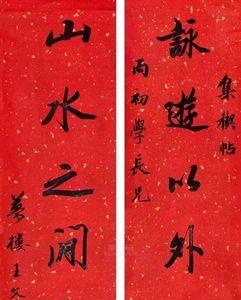 集禊帖
詠遊以外
雨初學長兄
山水之閒
夢樓王文